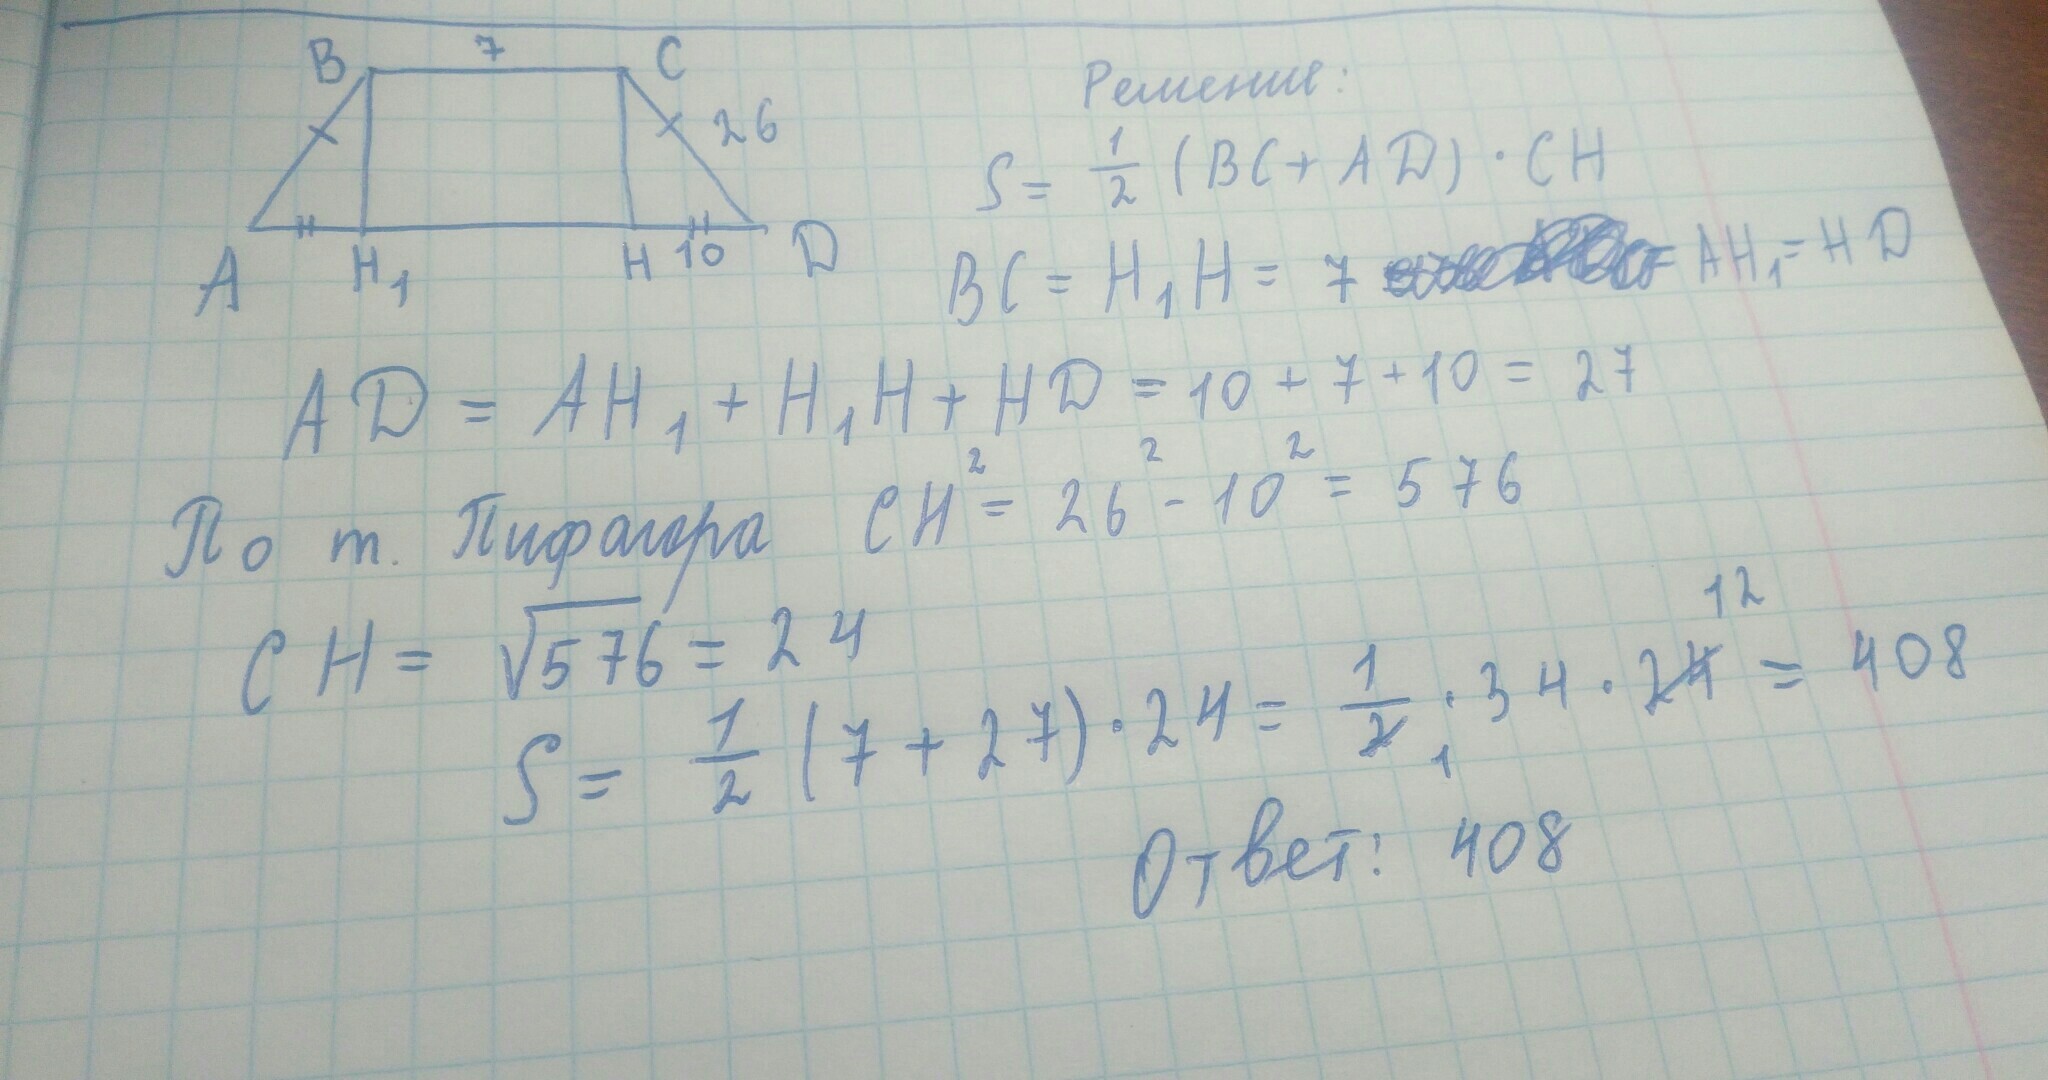 B 7 C
26
A H₁ H 10 D
Решение:
S = 1/2 (BC + AD) · CH
BC = H₁H = 7 AH₁ = HD
AD = AH₁ + H₁H + HD = 10 + 7 + 10 = 27
По т. Пифагора CH² = 26² - 10² = 576
CH = √576 = 24
S = 1/2 (7 + 27) · 24 = 1/2 1 · 34 · 24 12 = 408
Ответ: 408